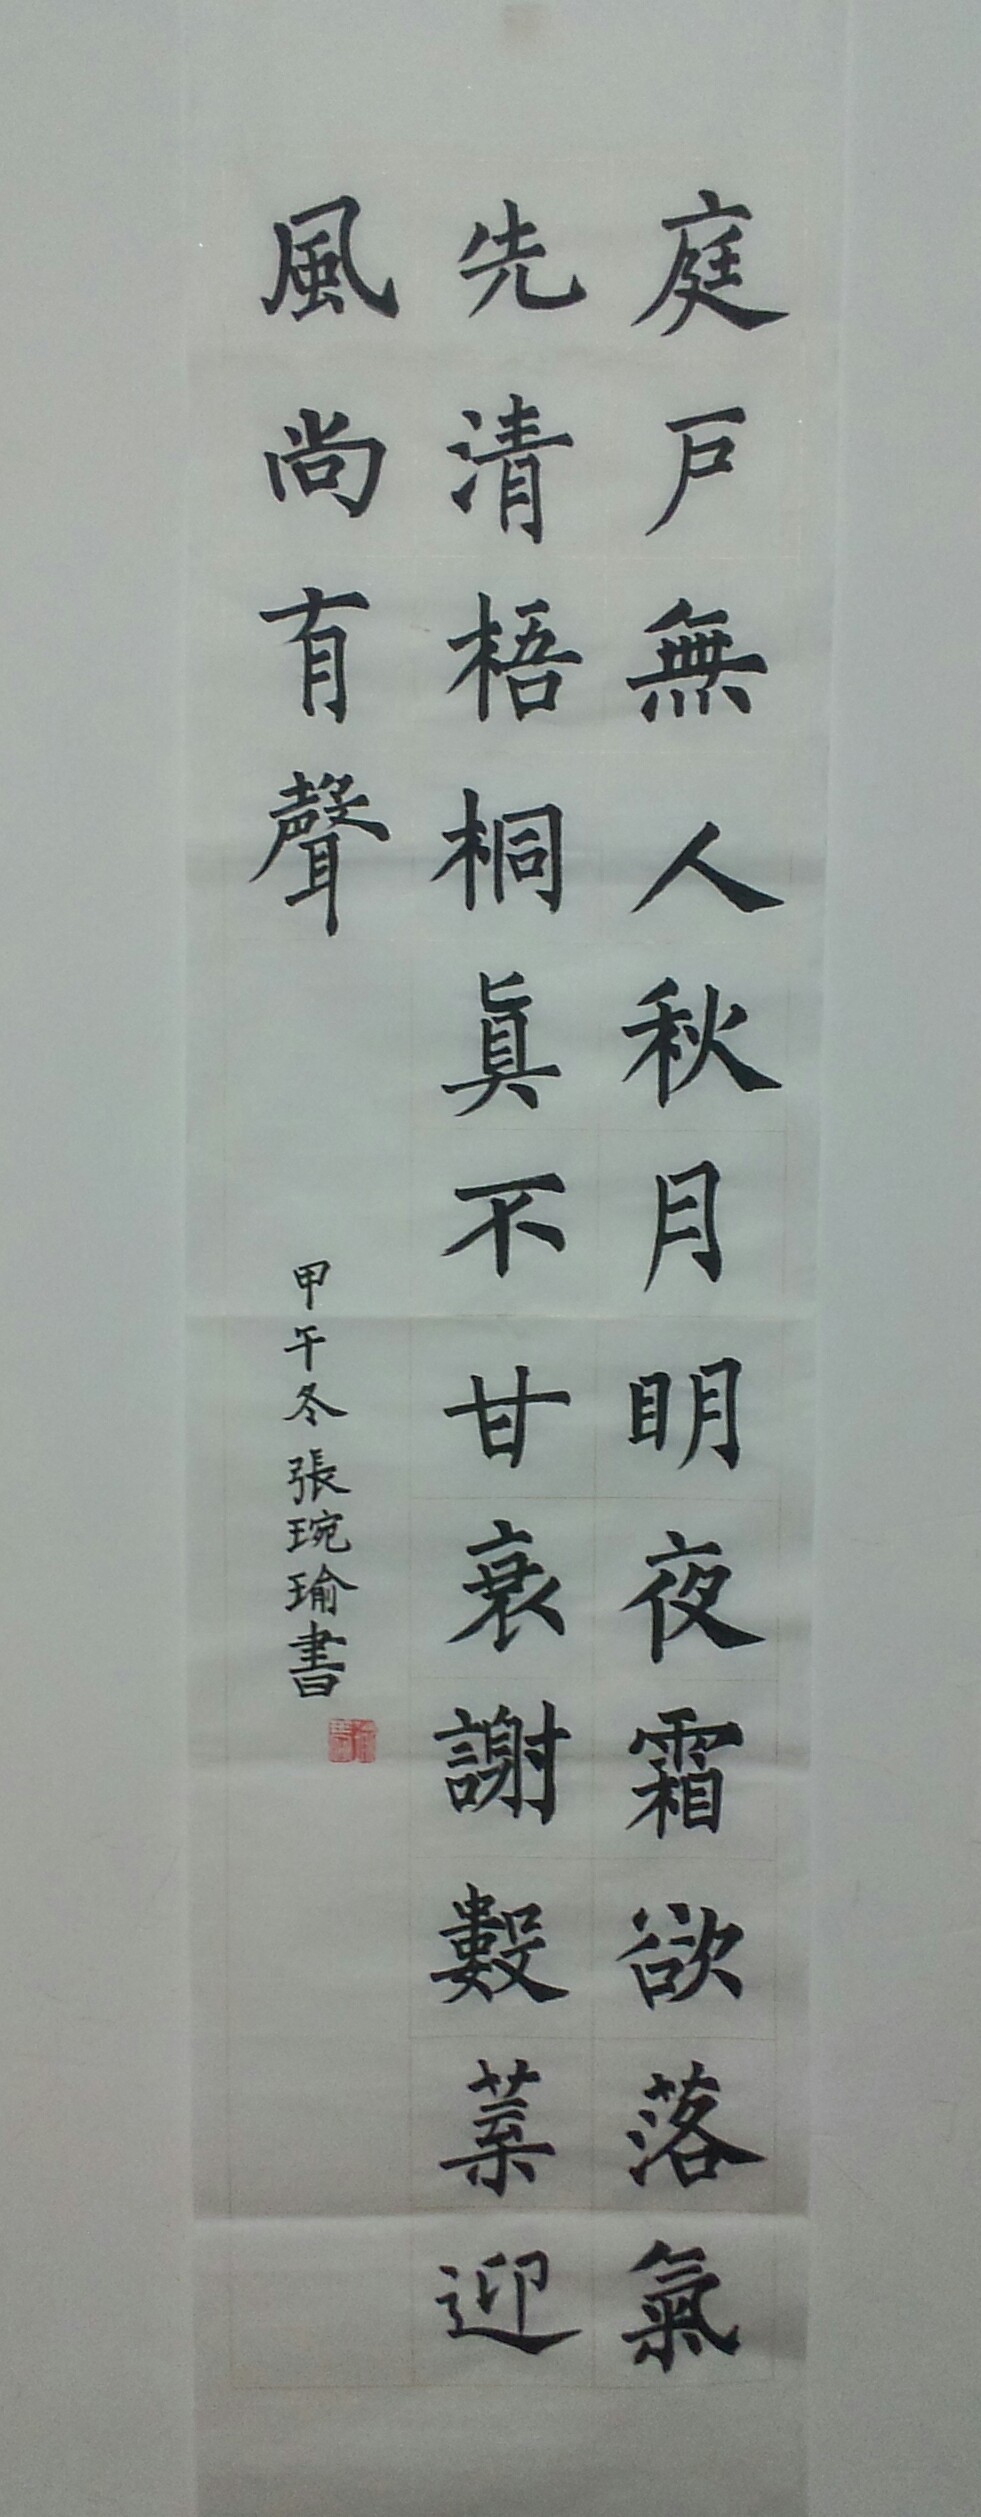 庭戶無人秋月明夜霜欲落氣
先清梧桐真不甘衰謝數葉迎
風尚有聲
甲午冬張琬瑜書